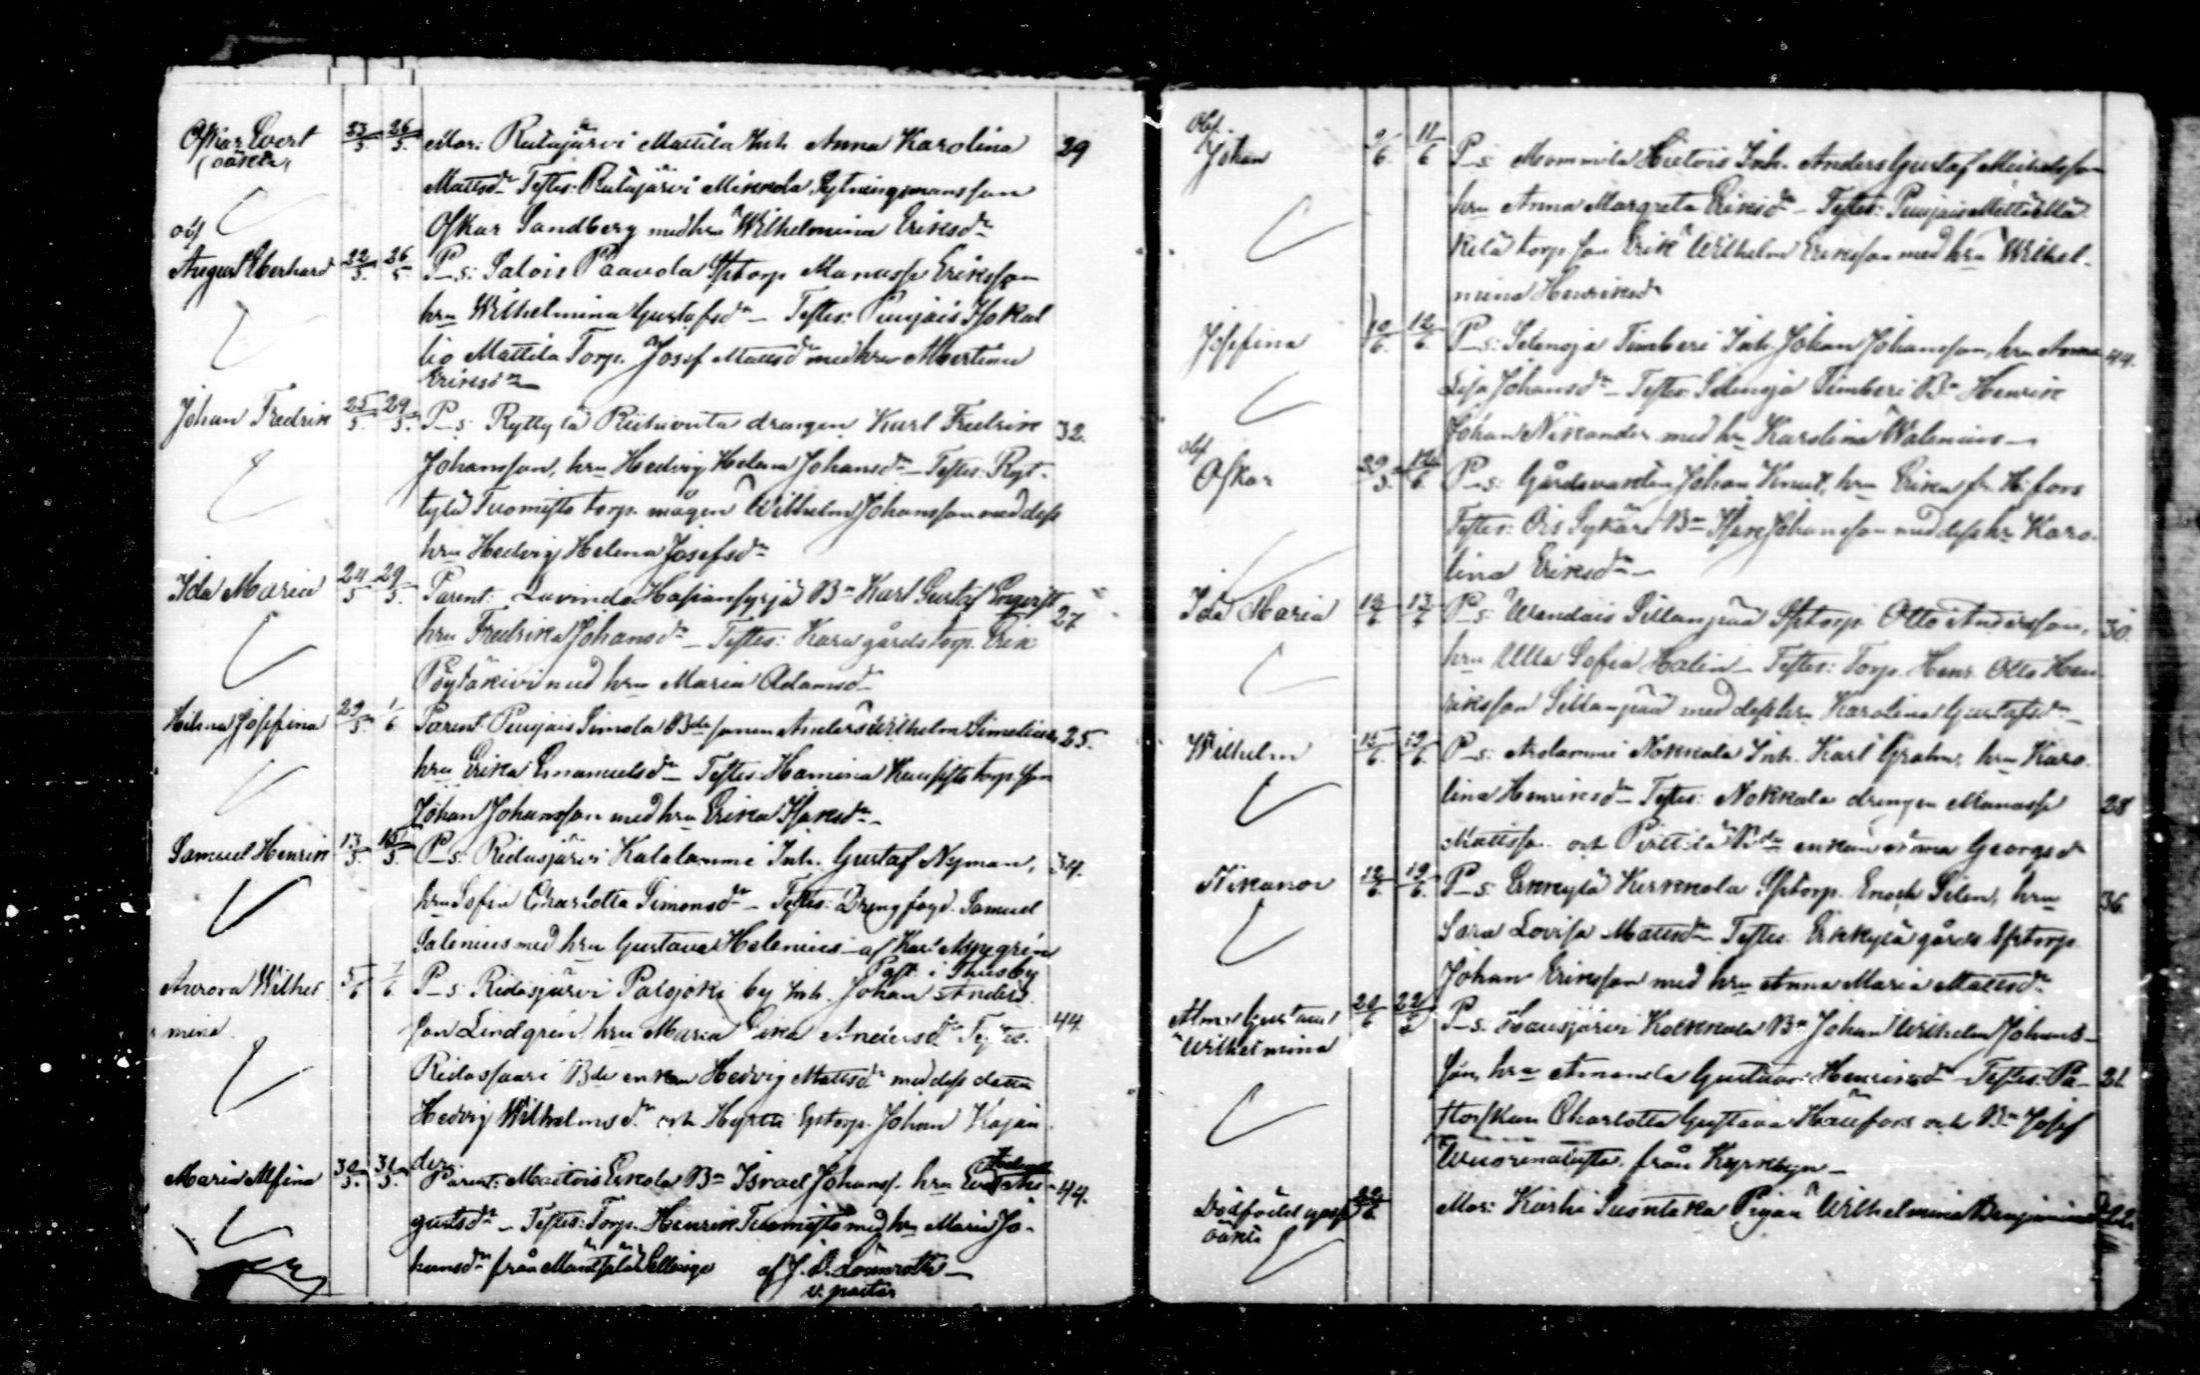 Oskar Evert 23/5. 26/5. Mor: Ridasjärvi Mattila Inh. Anna Karolina 29
(oäkta) Mattsdr Testes: Ridasjärvi Mikkola Sytningsmansson
obs Oskar Sandberg med hu Wilhelmina Eriksdr
August Eberhard 22/5. 26/5. P_s: Salois Paavola Sptorp Manasse Eriksson
hru Wilhelmina Gustafsdr _ Testes: Puujais Isokal
lio Mattila Torp. Josef Mattsd med hru Albertina
Eriksdr
Johan Fredrik 25/5. 29/5. P_s: Ryttylä drengen Karl Fredrik 32.
Johansson, hru Hedvig Helena Johansdr _ Testes: Ryt-
tylä Tuomisto torp. mågen Wilhelm Johansson med dess
hru Hedvig Helena Josefsdr
Ida Maria 24/5 29/5. Parent: Karl Gustaf 27
hru Fredrika Johansdr _ Testes: Kara gårds torp. Erik
Pöytäkivi med hru Maria Adamsdr
Hilma Josefina 29/5. 1/6 Parent: Puujais Simola Bde sonen Anders Wilhelm Simelius 25.
hru Erika Emanuelsdr _ Testes: Hamina torp. son
Johan Johansson med hru Erika Isaksdr _
Samuel Henrik 13/5. 15/5. P_s: Ridasjärvi Kalalammi Inh. Gustaf Nyman, 34.
hru Sofia Charlotta Simonsdr _ Testes: Drengfogd. Samuel
Salenius med hru Gustava Helenius _ af Karl Aspegrén
Past. i Thusby
Aurora Wilhel 5/6 7/6. P_s: Ridasjärvi Palojoki by Inh. Johan Anders-
mina. son Lindgrén, hru Maria Andersdr Testes: 44
Ridassaari Bde enkan Hedvig Mattsdr med dess dotter
Hedvig Wilhelmsdr och Hyttis Sptorp. Johan Kajan
der.
Maria Alfina 30/5. 31/5. Parent: Maitois Erkola Bn Israel Johanss. hru Eva 44.
gustsdr _ Testes: Torp. Henrik Tuomisto med hru Maria Jo-
hansdr från Mäntsälä Sälinge af J. Lönnroth _
v. pastor
Obs.
Johan 9/6. 11/6 P_s: Mommila Hietois Inh. Anders Gustaf Michelsson
hru Anna Margreta Eriksdr _ Testes: Puujais Mattila Mä
kelä torp. son Erik Wilhelm Eriksson med hru Wilhel-
mina Henriksdr
Josefina 10/6. 12/6. P_s: Selänoja Timberi Inh. Johan Johansson, hru Anna 44.
Lisa Johansdr _ Testes: Selänoja Timberi Bn Henrik
Johan Nikander med hru Karolina Walenius _
obs
Oskar 29/5. 12/6. P_s: Gårdsvakten Johan Knut, hru Erika fr. H:fors
Testes: Ois Sykäri Bn Isak Johansson med dess hru Karo-
lina Eriksdr _
Ida Maria 12/6 13/6 P_s: Wendois Sillanpää Sptorp. Otto Andersson, 30.
hru Ulla Sofia Malin _ Testes: Torp. Henr. Otto Hen-
riksson Sillanpää med dess hru Karolina Gustafsdr _
Wilhelm 15/6. 19/6. P_s: Arolammi Nokkala Inh. Karl Grahn, hru Karo-
lina Henriksdr _ Testes: Nokkala drengen Manasse 28
Mattsson och Pirttilä Bde enkan Anna Georgsd
Nikanor 12/6. 19/6. P_s: Erkkylä Kerkkola Sptorp. Enoch Silen, hru 36.
Sara Lovisa Mattsdr _ Testes: Erkkylä gårds Sptorp
Johan Eriksson med hru Anna Maria Mattsdr
Alma Gustava 21/6 22/6 P_s: Hausjärvi Kokkala Bn Johan Wilhelm Johans-
Wilhelmina son, hru Amanda Gustava Henriksdr _ Testes: Pa- 21.
storskan Charlotta Gustava och Bn Josef
från Kyrkbyn _
Dödfödd gosse 22/6 Mor: Karhi Suontaka Pigan Wilhelmina Benjaminsdr 22
oäkta